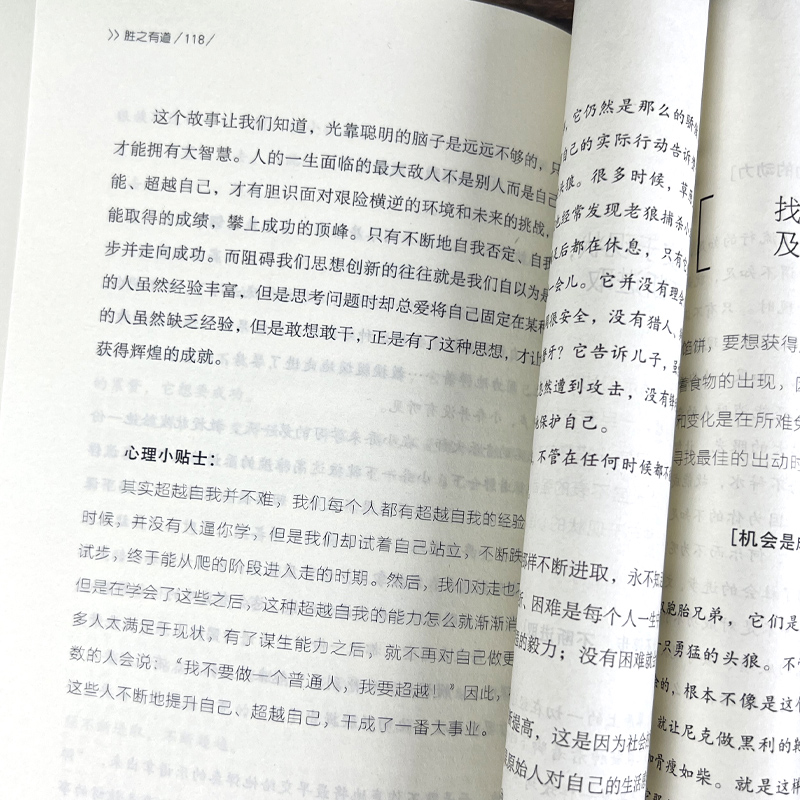 >> 胜之有道 /118/
这个故事让我们知道，光靠聪明的脑子是远远不够的，只
才能拥有大智慧。人的一生面临的最大敌人不是别人而是自己
能、超越自己，才有胆识面对艰险横逆的环境和未来的挑战，
能取得的成绩，攀上成功的顶峰。只有不断地自我否定、自我
步并走向成功。而阻碍我们思想创新的往往就是我们自以为是
的人虽然经验丰富，但是思考问题时却总爱将自己固定在某种
的人虽然缺乏经验，但是敢想敢干，正是有了这种思想，才让
获得辉煌的成就。
心理小贴士：
其实超越自我并不难，我们每个人都有超越自我的经验
时候，并没有人逼你学，但是我们却试着自己站立，不断跌
试步，终于能从爬的阶段进入走的时期。然后，我们对走也不
但是在学会了这些之后，这种超越自我的能力怎么就渐渐消
多人太满足于现状，有了谋生能力之后，就不再对自己做更
数的人会说：“我不要做一个普通人，我要超越！”因此，
这些人不断地提升自己、超越自己，干成了一番大事业。
，它仍然是那么的骄
自己的实际行动告诉
头狼。很多时候，草
也经常发现老狼捕杀小
之后都在休息，只有它
一会儿。它并没有理会
很安全，没有猎人、
磨牙？它告诉儿子，
忽然遭到攻击，没有
保护自己。
，不管在任何时候都不
那样不断进取，永不知
、困难是每个人一生
的毅力；没有困难就
提高，这是因为社会
原始人对自己的生活
[
找
及
馅饼，要想获得
着食物的出现，因
和变化是在所难免
寻找最佳的出动时
[机会是
双胞胎兄弟，它们是
一只勇猛的头狼。不
的，根本不像是这
就让尼克做黑利的
如骨瘦如柴。就是这样